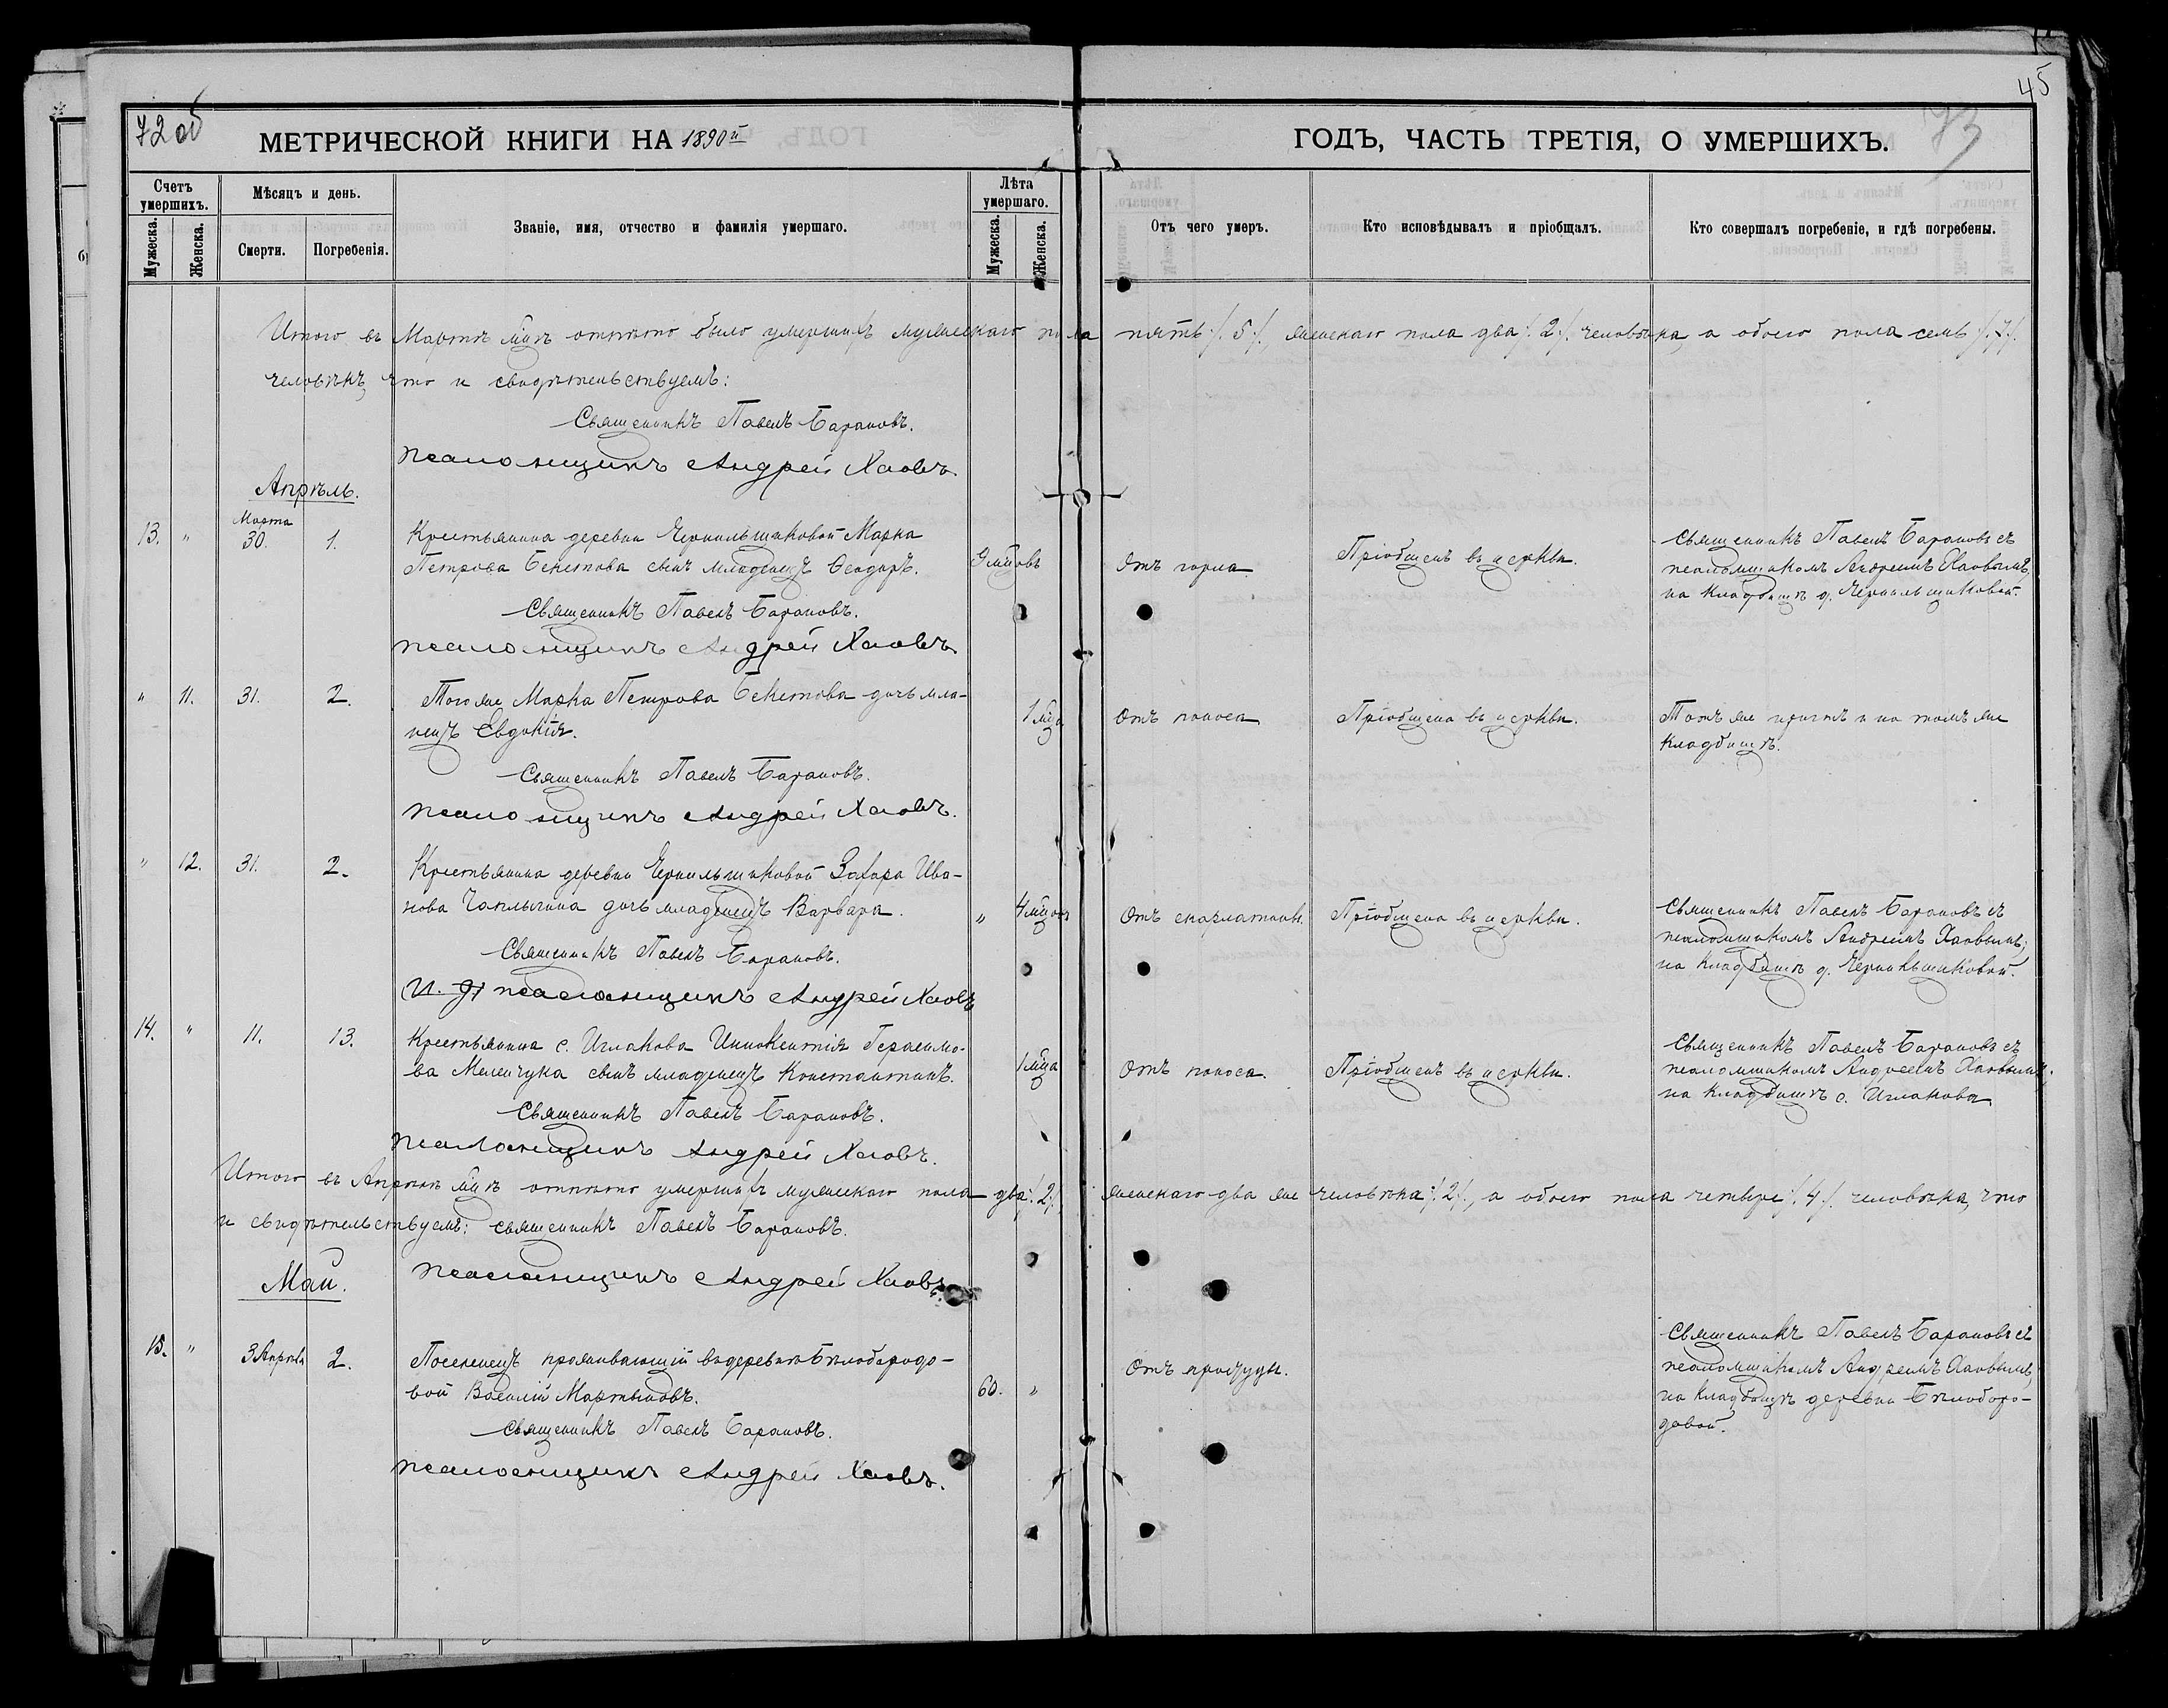 45
72 об
73
МЕТРИЧЕСКОЙ КНИГИ НА 1890й ГОДЪ, ЧАСТЬ ТРЕТІЯ, О УМЕРШИХЪ.
Счетъ умершихъ.
Мужеска.
Женска.
Мѣсяцъ и день.
Смерти.
Погребенія.
Званіе, имя, отчество и фамилія умершаго.
Лѣта умершаго.
Мужеска.
Женска.
Отъ чего умеръ.
Кто исповѣдывалъ и пріобщалъ.
Кто совершалъ погребеніе, и гдѣ погребены.
Итого въ Мартѣ мцѣ отпѣто было умершихъ мужескаго пола пять /. 5 /., женскаго пола два /. 2 /. человѣка, а обоего пола семь /. 7 /.
человѣкъ, что и свидѣтельствуемъ:
Священникъ Павелъ Барановъ.
Псаломщикъ Андрей Хаовъ.
Апрѣль.
13. " Марта 30. 1.
Крестьянина деревни Чернильщиковой Марка
Петрова Бекетова сынъ младенецъ Ѳеодоръ.
9 мцовъ
Отъ горла
Пріобщенъ въ церкви.
Священникъ Павелъ Барановъ съ
псаломщикомъ Андреемъ Хаовымъ,
на кладбищѣ д. Чернильщиковой.
Священникъ Павелъ Барановъ.
Псаломщикъ Андрей Хаовъ
" 11. 31. 2.
Того же Марка Петрова Бекетова дочь мла-
нецъ Евдокія.
1 мца
Отъ поноса
Пріобщена въ церкви.
Тотъ же причтъ и на томъ же
кладбищѣ.
Священникъ Павелъ Барановъ.
Псаломщикъ Андрей Хаовъ.
" 12. 31. 2.
Крестьянина деревни Чернильщиковой Захара Ива-
нова Чаплыгина дочь младенецъ Варвара.
" 4 мцовъ
Отъ скарлатины
Пріобщена въ церкви.
Священникъ Павелъ Барановъ съ
псаломщикомъ Андреемъ Хаовымъ;
на кладбищѣ д. Чернильщиковой.
Священникъ Павелъ Барановъ.
И. д. псаломщикъ Андрей Хаовъ
14. " 11. 13.
Крестьянина с. Иглакова Иннокентія Герасимо-
ва Мелечука сынъ младенецъ Константинъ.
1 мца
Отъ поноса.
Пріобщенъ въ церкви.
Священникъ Павелъ Барановъ съ
псаломщикомъ Андреемъ Хаовымъ;
на кладбищѣ с. Иглакова
Священникъ Павелъ Барановъ.
Псаломщикъ Андрей Хаовъ.
Итого въ Апрѣлѣ мцѣ отпѣто умершихъ мужескаго пола два /. 2 /. женскаго два же человѣка /. 2 /., а обоего пола четыре /. 4 /. человѣка, что
и свидѣтельствуемъ: священникъ Павелъ Барановъ.
Псаломщикъ Андрей Хаовъ.
Май.
15. " 3 Апрѣля 2.
Поселенецъ проживающій въ деревнѣ Бѣлобородо-
вой Василій Мартыновъ.
60. "
Отъ простуды.
Священникъ Павелъ Барановъ съ
псаломщикомъ Андреемъ Хаовымъ,
на кладбищѣ деревни Бѣлоборо-
довой.
Священникъ Павелъ Барановъ.
Псаломщикъ Андрей Хаовъ.